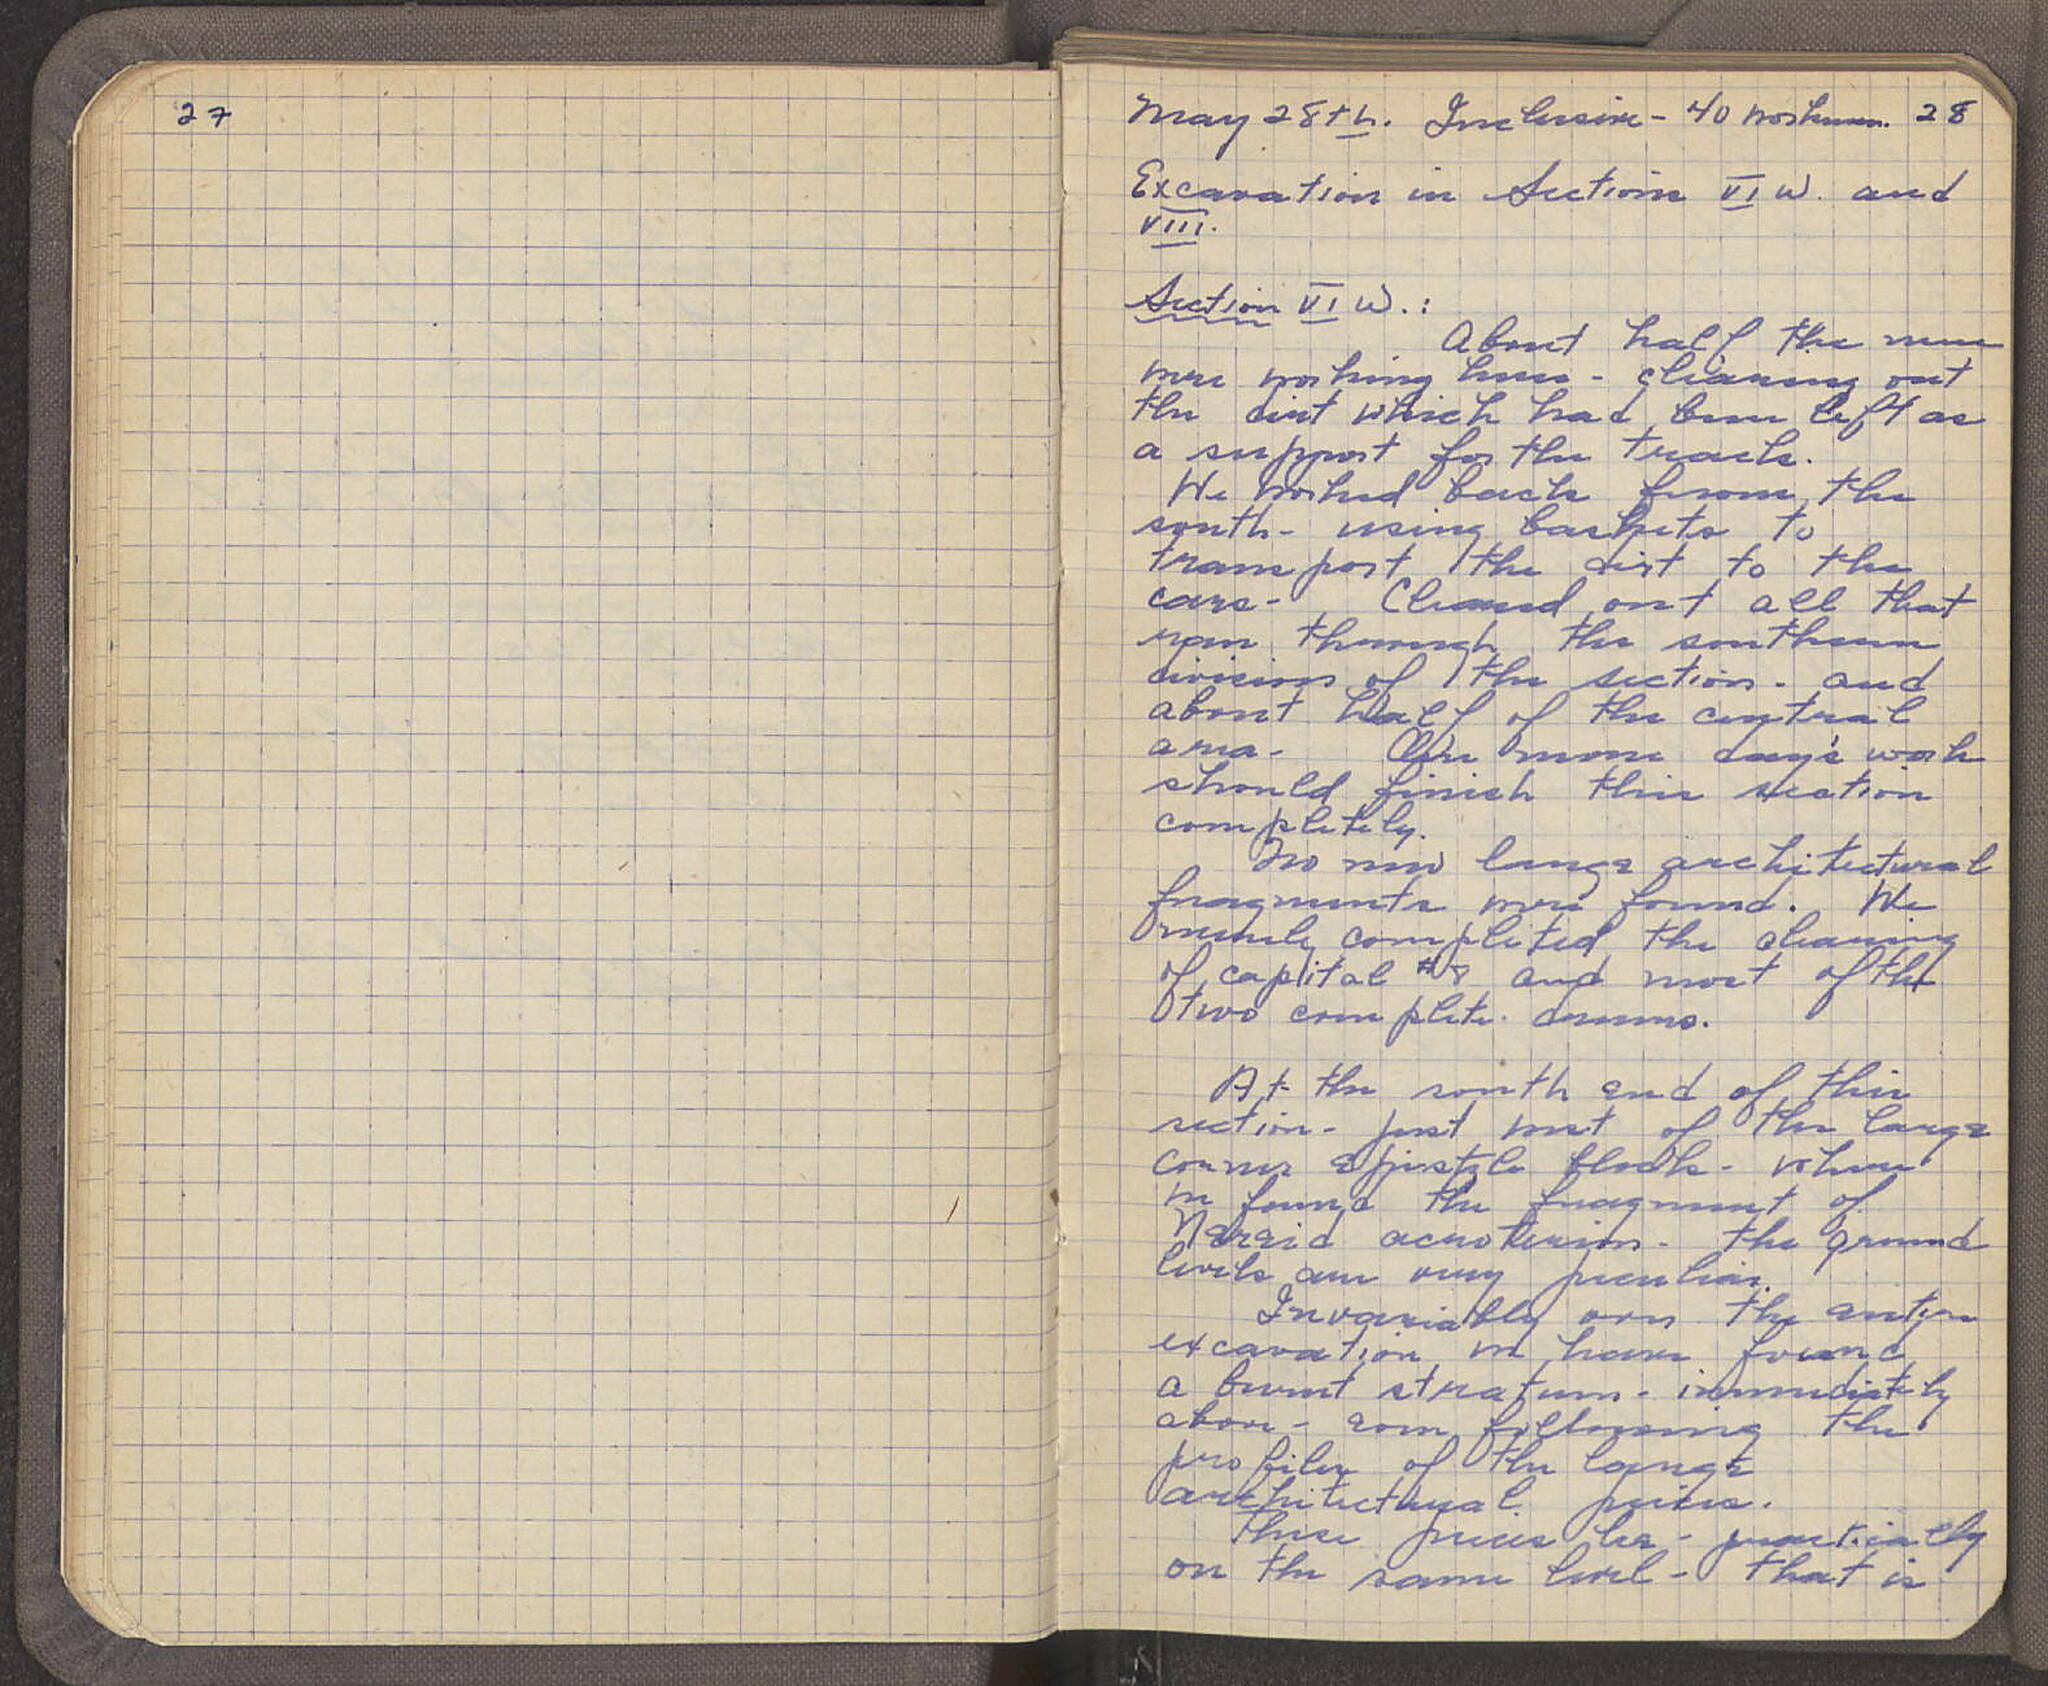 27
May 28th. Inclusive - 40 workmen. 28
Excavation in Sections VI W. and
VIII.
Section VI W.:
About half the men
were working here - cleaning out
the dirt which had been left as
a support for the track.
We worked back from the
south - using baskets to
transport the dirt to the
cars - Cleaned out all that
ran through the southern
division of the section - and
about half of the central
area - One more day's work
should finish this section
completely.
No new large architectural
fragments were found. We
merely completed the cleaning
of capital #8 and most of the
two complete drums.
At the south end of this
section - just west of the large
corner epistyle block - where
we found the fragment of
Nereid acroterion - the ground
levels are very peculiar.
Invariably over the entire
excavation we have found
a burnt stratum - immediately
above - even following the
profiles of the large
architectural pieces.
These pieces lie - practically
on the same level - that is